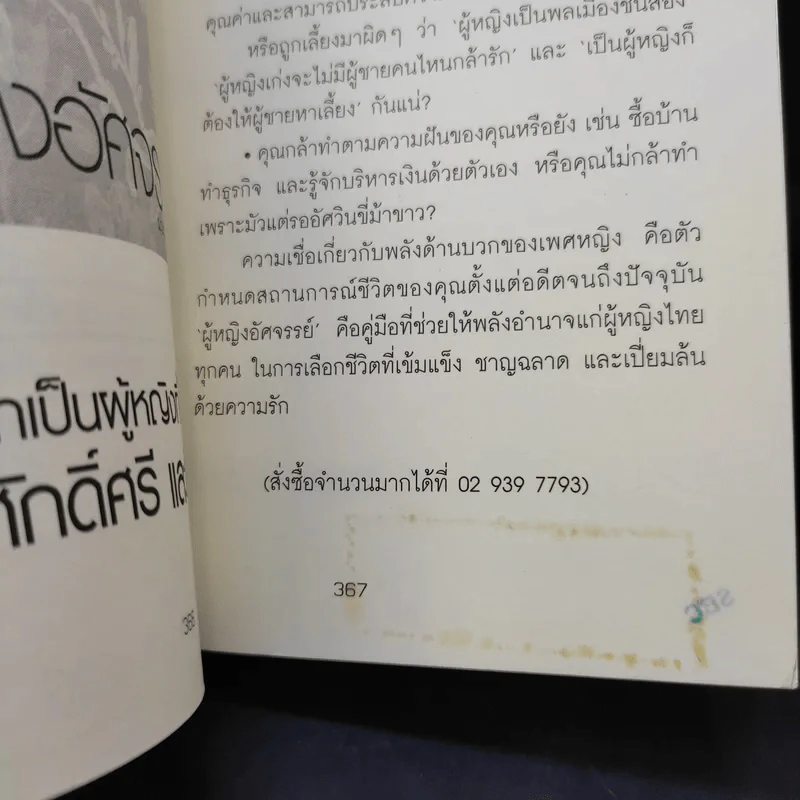 งอัศจร
กเป็นผู้หญิง
ศักดิ์ศรี และ
คุณค่าและสามารถประสบ
หรือถูกเลี้ยงมาผิดๆ ว่า 'ผู้หญิงเป็นพลเมืองชั้นสอง'
'ผู้หญิงเก่งจะไม่มีผู้ชายคนไหนกล้ารัก' และ 'เป็นผู้หญิงก็
ต้องให้ผู้ชายหาเลี้ยง' กันแน่?
• คุณกล้าทำตามความฝันของคุณหรือยัง เช่น ซื้อบ้าน
ทำธุรกิจ และรู้จักบริหารเงินด้วยตัวเอง หรือคุณไม่กล้าทำ
เพราะมัวแต่รออัศวินขี่ม้าขาว?
ความเชื่อเกี่ยวกับพลังด้านบวกของเพศหญิง คือตัว
กำหนดสถานการณ์ชีวิตของคุณตั้งแต่อดีตจนถึงปัจจุบัน
'ผู้หญิงอัศจรรย์' คือคู่มือที่ช่วยให้พลังอำนาจแก่ผู้หญิงไทย
ทุกคน ในการเลือกชีวิตที่เข้มแข็ง ชาญฉลาด และเปี่ยมล้น
ด้วยความรัก
(สั่งซื้อจำนวนมากได้ที่ 02 939 7793)
367